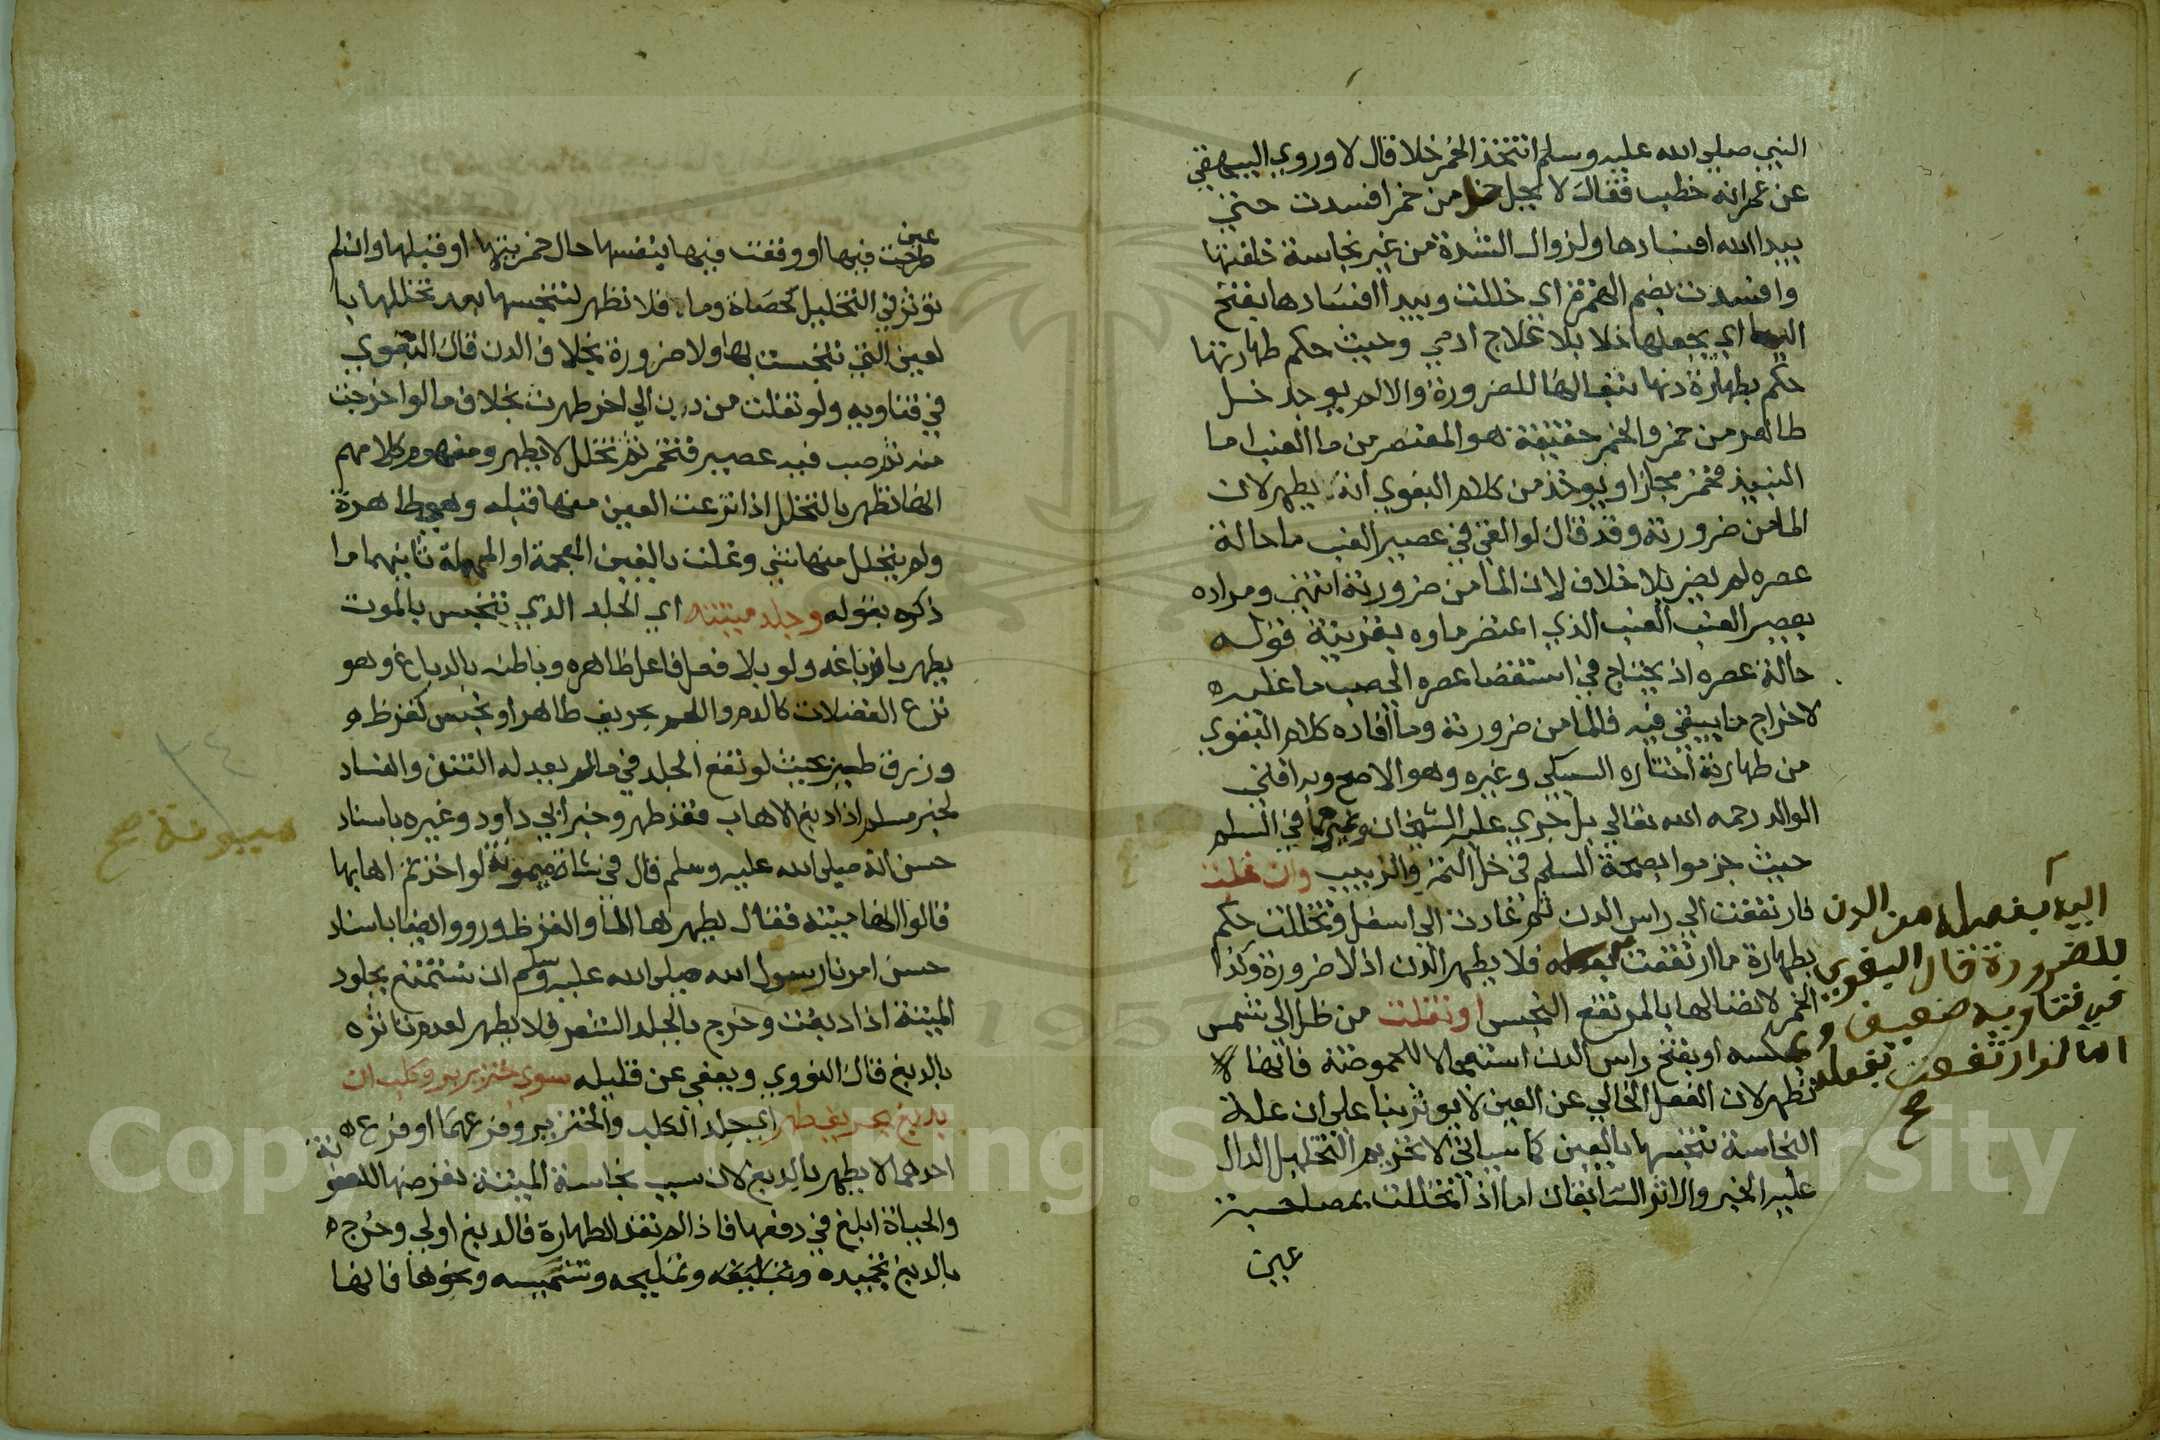 النبي صلي الله عليه وسلم انتخذ الخمر خلا قال لا وروي البيهقي
عن عمر انه خطب فقال لا يحل خل من خمر افسدت حتي
يبدا الله افسادها ولزوال الشدة من غير نجاسة خلفتها
وافسدت بضم الهمزة اي خللت ويبدا افسادها بفتح
اليا اي يجعلها خلا بلا علاج ادمي وحيث حكم طهارتها
حكم بطهارة دنها تبعا لها للضرورة والا لم يوجد خل
طاهر من خمر والخمر حقيقة هو المعتصر من ما العنب اما
النبيذ فخمر مجازا ويوخذ من كلام البغوي انه يطهر لان
الما من ضرورته وقد قال لو القي في عصير العنب ما حالة
عصره لم يضر بلا خلاف لان الما من ضرورته انتهي ومراده
بعصير العنب العنب الذي اعتصر ماوه بقرينة قوله
حالة عصره اذ يحتاج في استقصا عصره الي صب ما عليه
لاخراج ما يبقي فيه فالما من ضرورته وما افاده كلام البغوي
من طهارته اختاره السبكي وغيره وهو الاصح وبه افتي
الوالد رحمه الله تعالي بل جري عليه الشيخان وغيرهما في السلم
حيث جزموا بصحة السلم في خل التمر والزبيب وان غلت
فارتفعت الي راس الدن ثم عادت الي اسفل وتخللت حكم
بطهارة ما ارتفعت فلا يطهر الدن اذ لا ضرورة وكذا
الخمر لاتصالها بالمرتفع النجس او نقلت من ظل الي شمس
وعكسه او بفتح راس الدن استعجالا للحموضة فانها
تطهر لان الفعل الخالي عن العين لا يوثر بنا علي ان علة
النجاسة تنجسها بالعين كما سياتي لا تحريم التخليل الدال
عليه الخبر والاثر السابقان اما اذا تخللت بمصاحبة
عين
اليه بفعله من الدن
للضرورة قال البغوي
في فتاويه
اما لو ارتفعت بفعله
صح
عين
طرحت فيها او وقعت فيها بنفسها حال خمريتها او قبلها وان لم
توثر في التخليل كحصاة وما فلا تطهر لتنجسها بعد تخللها با
لعين التي تنجست بها ولا ضرورة بخلاف الدن قال البغوي
في فتاويه ولو نقلت من دن الي اخر طهرت بخلاف ما لو اخرجت
منه ثم صب فيه عصير فتخمر ثم تخلل لا يطهر ومفهوم كلامهم
انها تطهر بالتخلل اذا نزعت العين منها قبله وهي طاهرة
ولم يتخلل منها شي وغلت بالغين المعجمة او المهملة ثانيهما ما
ذكره بقوله وجلد ميتته اي الجلد الذي ينجس بالموت
يطهر باندباغه ولو بلا فعل فاعل ظاهره وباطنه بالدباغ وهو
نزع الفضلات كالدم واللحم بحريف طاهر او نجس كقرظ
وزرق طير بحيث لو نقع الجلد في ما لم يعد له النتن والفساد
لخبر مسلم اذا دبغ الاهاب فقد طهر وخبر ابي داود وغيره باسناد
حسن انه صلي الله عليه وسلم قال في شاة ميمونة لو اخذتم اهابها
قالوا انها ميتة فقال يطهرها الما والقرظ ورووا ايضا باسناد
حسن امرنا رسول الله صلي الله عليه وسلم ان نستمتع بجلود
الميتة اذا دبغت وخرج بالجلد الشعر فلا يطهر لعدم تاثره
بالدبغ قال النووي ويعفي عن قليله سوي خنزير وكلب ان
يدبغ بحريف طهر اي جلد الكلب والخنزير وفرعهما او فرع
احدهما لا يطهر بالدبغ لان سبب نجاسة الميتة تعرضها للعفونة
والحياة ابلغ في دفعها فاذا لم تفد الطهارة فالدبغ اولي وخرج
بالدبغ تجميده وتمليحه وتشميسه ونحوها فانها
ميمونة صح
٣٤